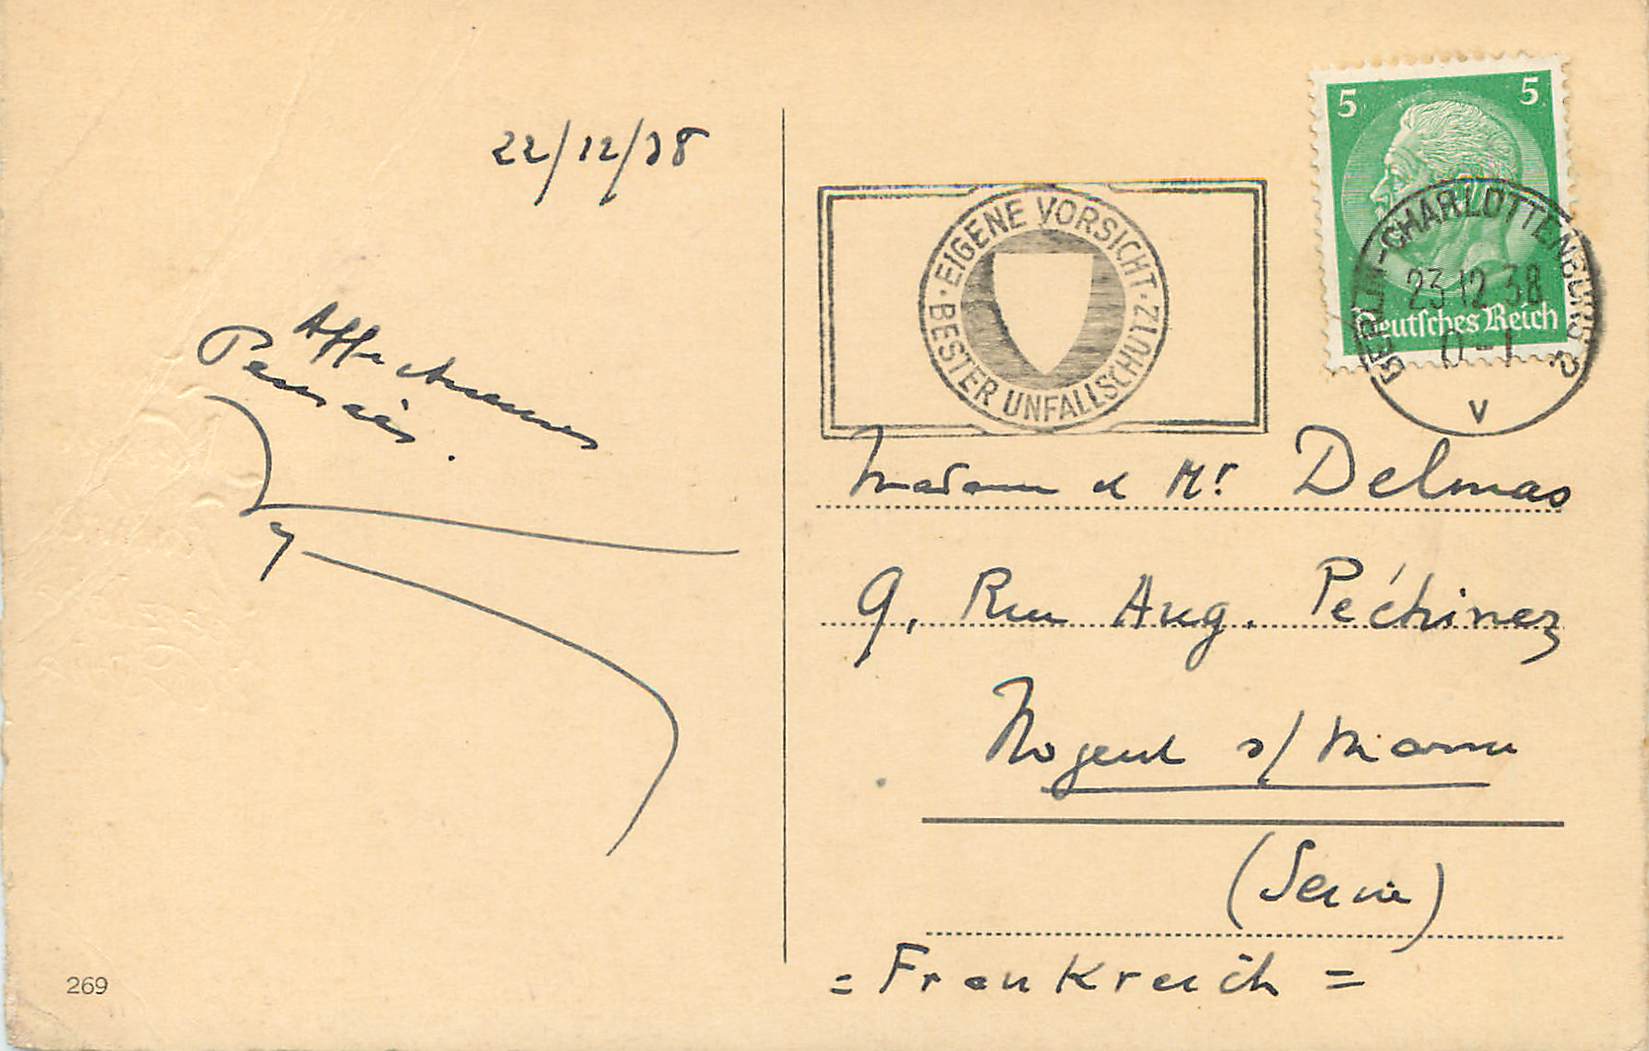 22/12/38
Affectueuses
Pensées.
269
EIGENE VORSICHT · BESTER UNFALLSCHUTZ ·
5 5
Deutsches Reich
BERLIN-CHARLOTTENBURG 2
23.12.38
0-1
V
Madame et Mr Delmas
9, Rue Aug. Péchinez
Nogent s/Marne
(Seine)
= Frankreich =